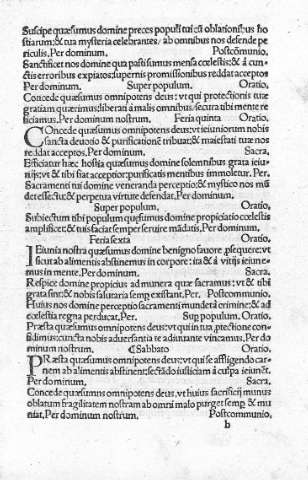 Suscipe quæsumus domine preces populi tui cũ oblationibus ho
stiarum: & tua mysteria celebrantes/ ab omnibus nos defende pe
riculis. Per dominum. Postcõmunio.
Sanctificet nos domine qua pasti sumus mensa cœlestis: & à cun
ctis erroribus expiatos: supernis promissionibus reddat acceptos
Per dominum. Super populum. Oratio.
Concede quæsumus omnipotens deus: vt qui protectionis tuæ
gratiam quærimus: liberati à malis omnibus/ secura tibi mente
ficiamus. Per dominum nostrum. Feria quinta Oratio.
COncede quæsumus omnipotens deus: vt ieiuniorum nobis
sancta deuotio & purificationẽ tribuat: & maiestati tuæ nos
reddat acceptos. Per dominum. Sacra.
Efficiatur hæc hostia quæsumus domine solemnibus grata ieiu
nijs: vt & tibi fiat acceptior: purificatis mentibus immoletur. Per.
Sacramenti tui domine veneranda perceptio: & mystico nos mũ
det effectu: & perpetua virtute defendat. Per dominum.
Super populum. Oratio.
Subiectum tibi populum quæsumus domine propiciatio cœlestis
amplificet: & tuis faciat semper seruire mãdatis. Per dominum.
Feria sexta Oratio.
IEiunia nostra quæsumus domine benigno fauore ꝓsequere: vt
sicut ab alimentis abstinemus in corpore: ita & à vitijs ieiune-
mus in mente. Per dominum. Sacra.
Respice domine propicius ad munera quæ sacramus: vt & tibi
grata sint: & nobis salutaria semp existant. Per. Postcommunio.
Huius nos domine perceptio sacramenti mundet à crimine: & ad
cœlestia regna perducat. Per. Sup populum. Oratio.
Præsta quæsumus omnipotens deus: vt qui in tua ꝓtectione con
fidimus: cuncta nobis aduersantia te adiuuante vincamus. Per do
minum nostrum. ¶Sabbato Oratio.
PRæsta quæsumus omnipotens deus: vt qui se affligendo car-
nem ab alimentis abstinent: sectãdo iusticiam à culpa ieiunẽt.
Per dominum. Sacra.
Concede quæsumus omnipotens deus, vt huius sacrificij munus
oblatum fragilitatem nostram ab omni malo purget semp & mu
niat. Per dominum nostrum. Postcommunio.
b